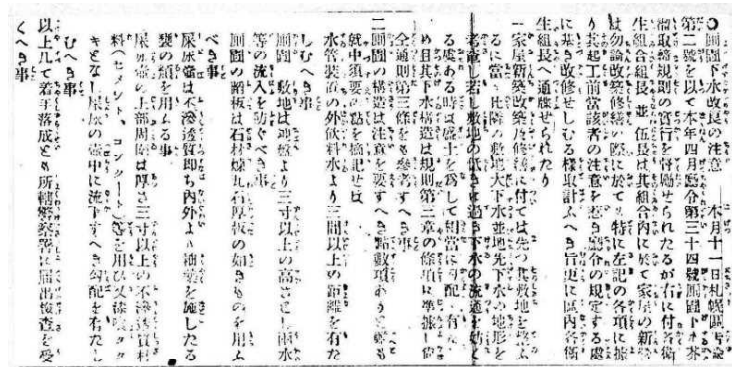 〇厠圊下水改良の注意 本月十一日札幌區告諭
第二號を以て本年四月廳令第三十四號厠圊下水芥
溜取締規則の實行を督勵せられたるが右に付各衛
生組合組長並伍長は其組合内に於て家屋の新築
は勿論改築修繕の際に於ても特に左記の各項に據
り其起工前當該者の注意を惹き廳令の規定する處
に基き改修せしむる樣取計ふべき旨更に區内各衛
生組長へ通牒せられたり
一家屋新築改築乃修繕に付ては先つ其敷地を
るに當り比隣の敷地大下水並地先下水の地形を
考量し若し敷地の低きに過き下水の流通を妨く
る虞ある時は盛土を爲して相當に勾配を有
め且其下水構造は規則第二章の條項に準據し
全通則第三條をも參考すへき事
二厠圊の構造は注意を要すへき點數項あり雖も
就中須要の點を摘記せは
水管裝置の外飲料水より三間以上の距離を有た
しむへき事
厠圊の敷地は地盤より三寸以上の高さとし雨水
等の流入を防ぐべき事
厠圊の踏板は石材煉瓦石厚板の如きものを用ふ
べき事
尿尿壺は不滲透質即ち内外より釉藥を施したる
甕の類を用ふる事
尿尿壺の上部周圍は厚さ三寸以上の不滲透質材
料(セメント、コンクリート)等を用ひ又漆喰タタ
キとなし屎尿の壺中に流下すへき勾配を有たし
むへき事
以上凡て着手落成とも所轄警察署に届出檢査を受
くへき事